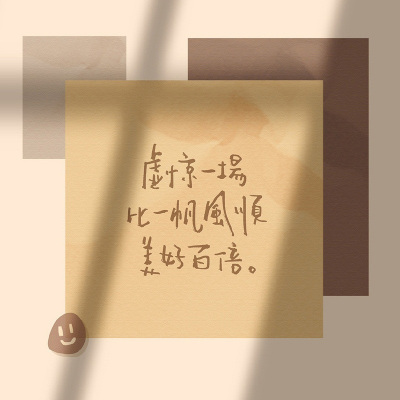 虛惊一場
比一帆風順
美好百倍。